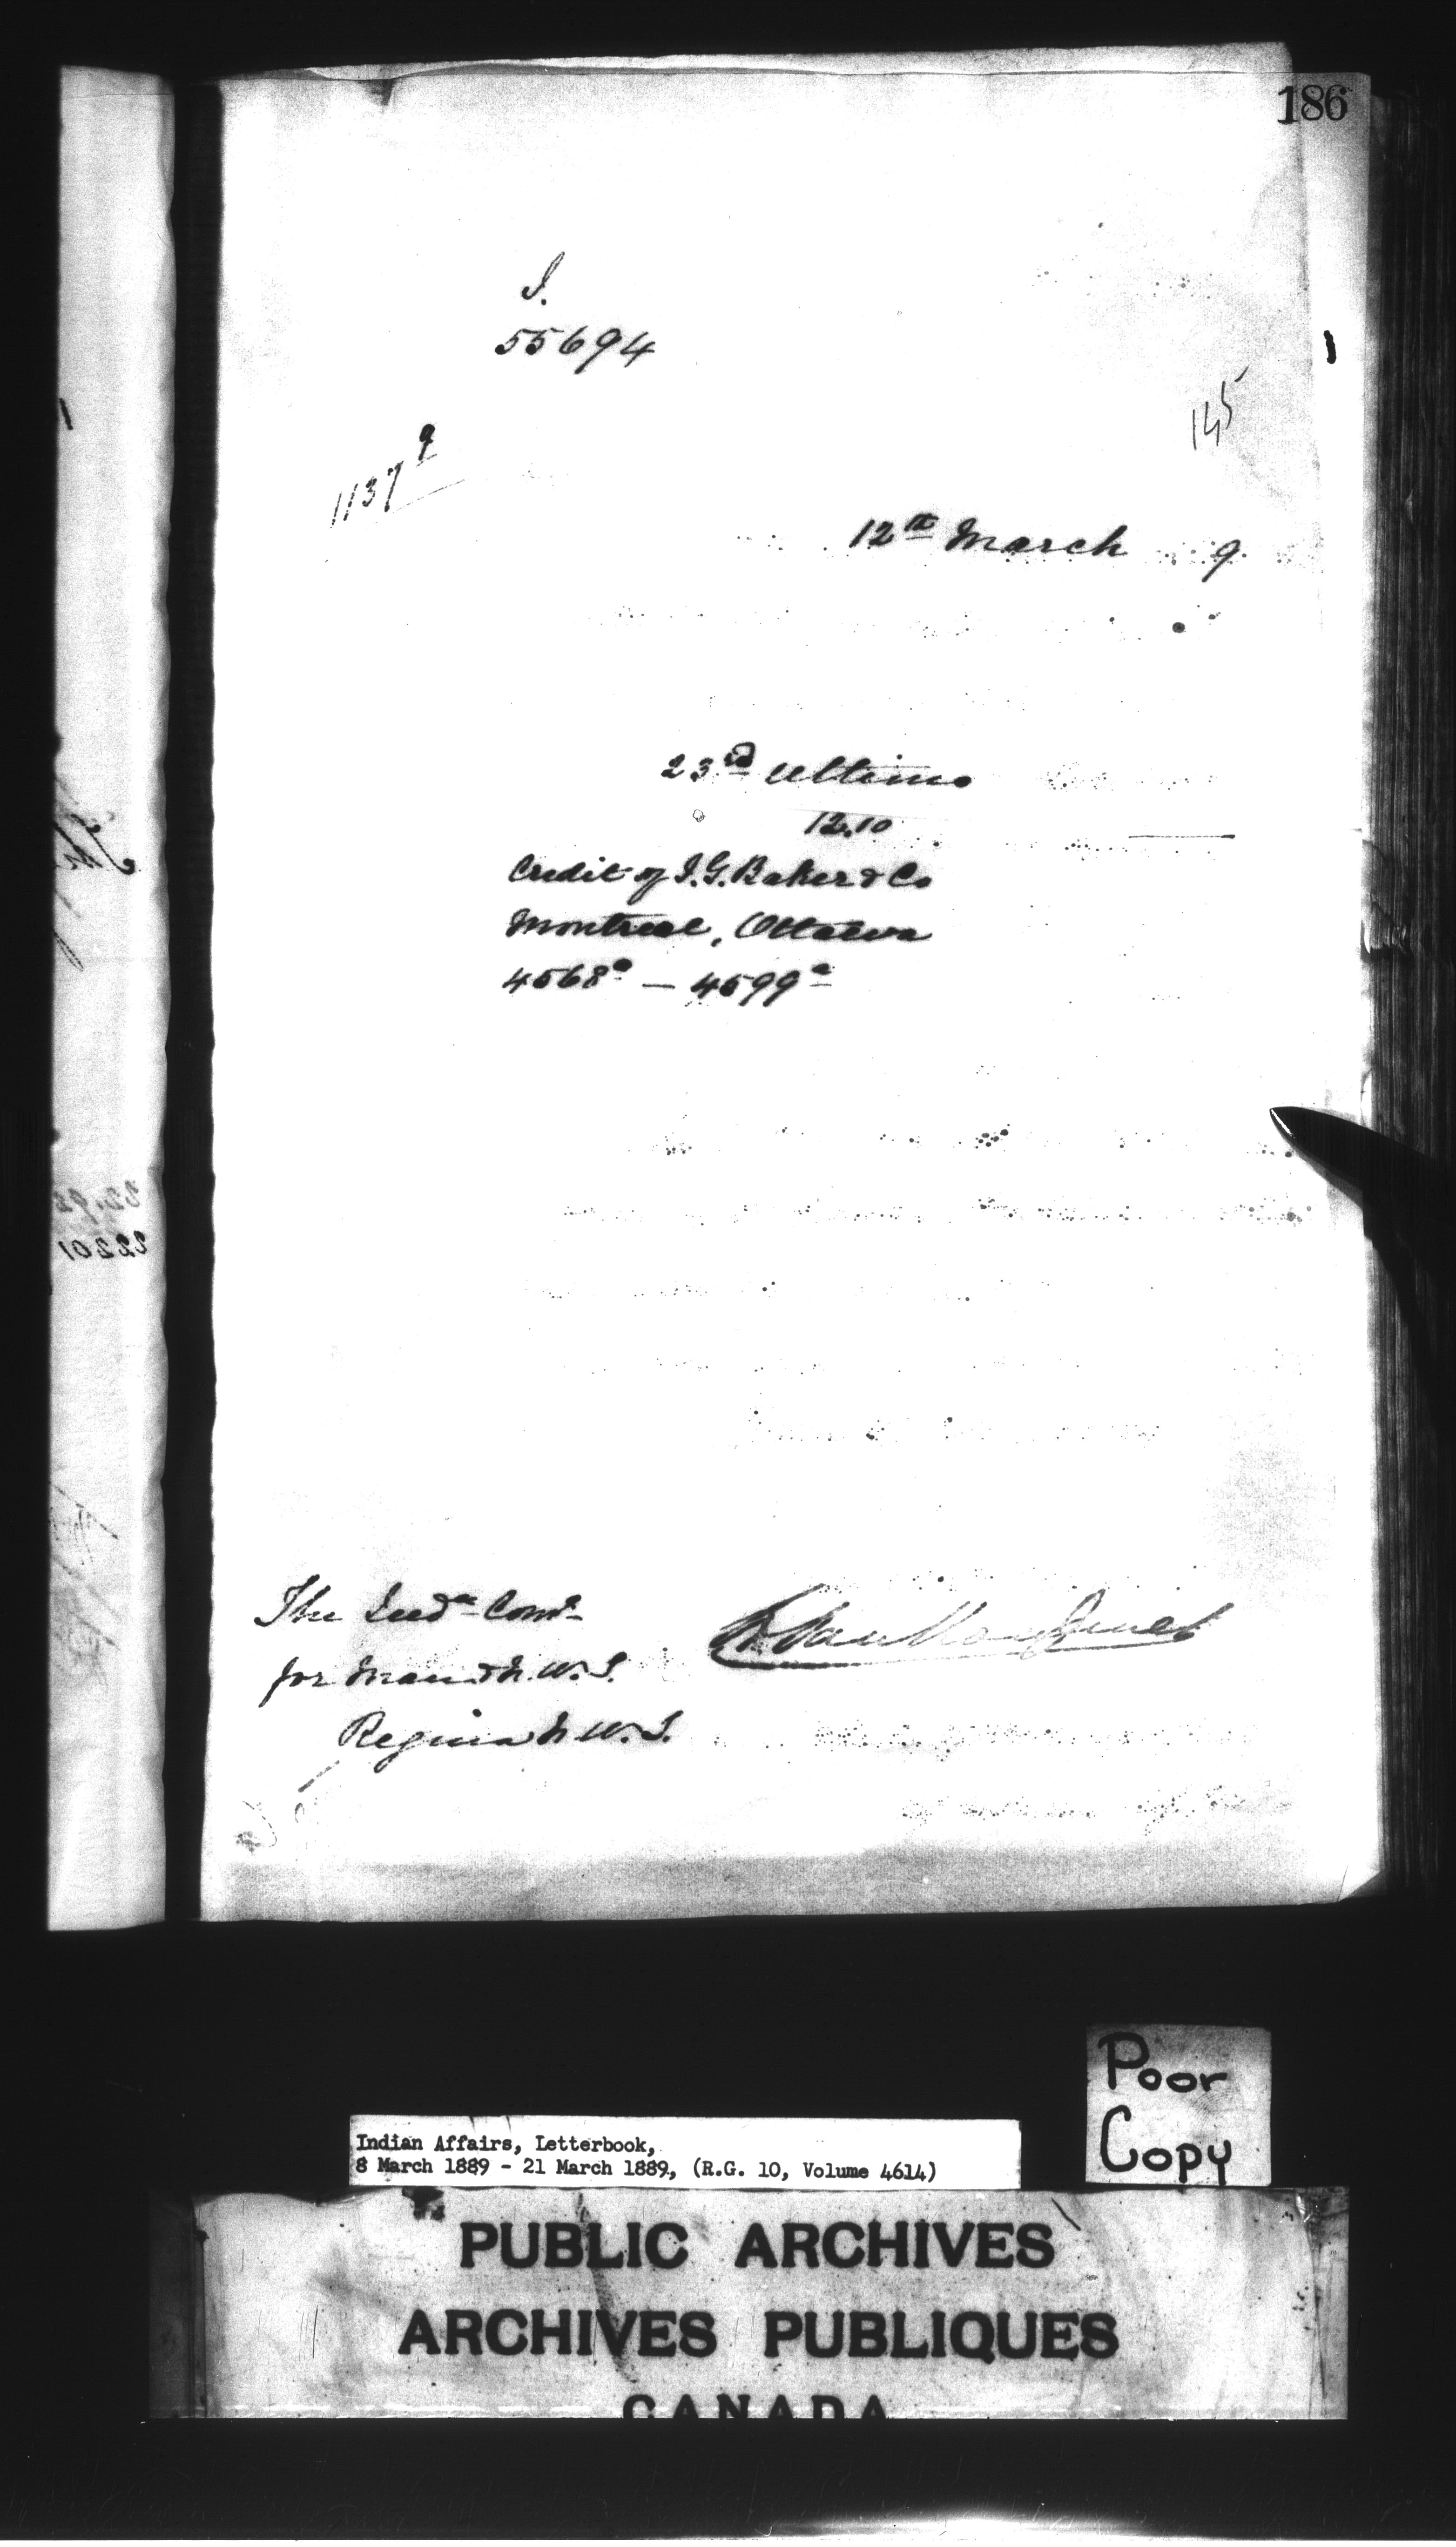 186
I.
55694
145
1137 9
12th March 9
23rd Ultimo
12.10
Credit of I.G. Baker & Co
Montreal, Ottawa
4568a — 4599a
The Indn Comr
for Man & N.W.T.
Regina N.W.T.
L. Vankoughnet
22201
Poor
Copy
Indian Affairs, Letterbook,
8 March 1889 - 21 March 1889, (R.G. 10, Volume 4614)
PUBLIC ARCHIVES
ARCHIVES PUBLIQUES
CANADA